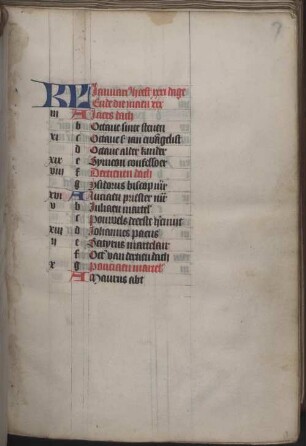 KL Januari heeft xxxi dage
Ende die maen xxx
iii A Jaers dach
b Octave sinte steven
xi c Octave s. van ewangelist
d Octave alder kinder
xix e Symeon confessoer
viii f Dertienen dach
g Ysidorus biscop
xvi A Luciaen priester
v b Juliaen martel
c Pouwels eerste
xiii d Johannes
ii e Satyrus martelaer
f Oct van dertien dach
x g Ponciaen martel
A Maurus abt